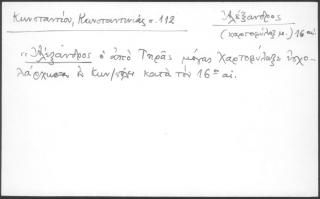 Κωνσταντίου, Κωνσταντινιάς σ. 112
Ἀλέξανδρος
(χαρτοφύλαξ μ.) 16 αἰ.
"Ἀλέξανδρος ὁ ἀπὸ Γηρᾶς μέγας Χαρτοφύλαξ ἐσχο-
λάρχησεν ἐν Κων/πόλει κατὰ τὸν 16ον αἰ.